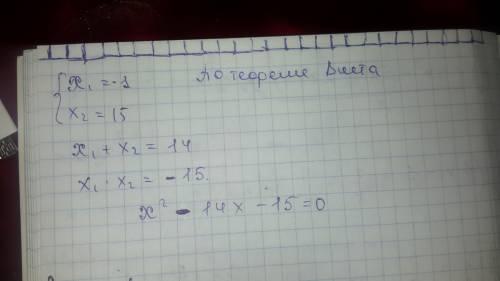 x₁ = -1 По теореме Виета
x₂ = 15
x₁ + x₂ = 14
x₁ · x₂ = -15.
x² - 14x - 15 = 0